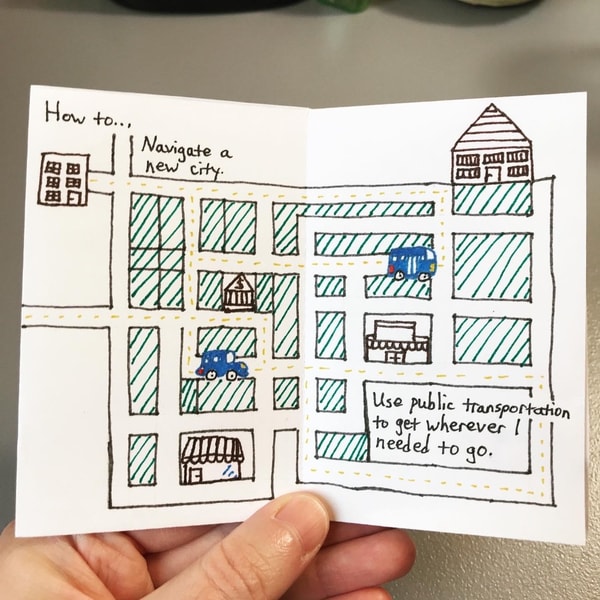 How to...
Navigate a
new city.
$
Use public transportation
to get wherever I
needed to go.